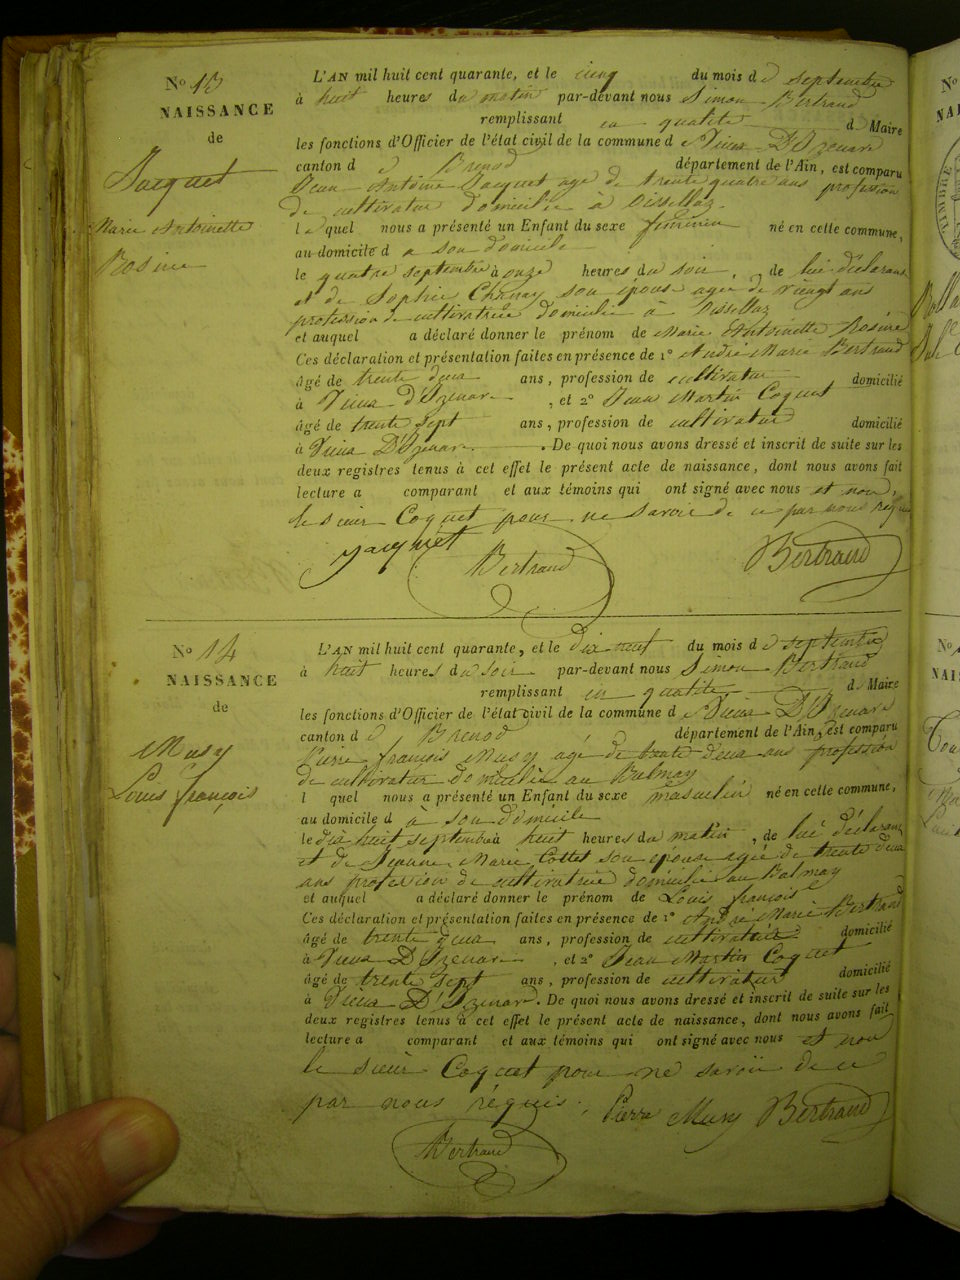 No 13
NAISSANCE
de
Jacquet
Marie Antoinette
Rosine
L'AN mil huit cent quarante, et le cinq du mois de septembre
à huit heures du matin par-devant nous Simon Bertrand
remplissant en qualité de Maire
les fonctions d'Officier de l'état civil de la commune de Vieux D'Izenave
canton de Brenod département de l'Ain, est comparu
Jean Antoine Jacquet agé de trente quatre ans profession
de cultivateur domicilié à
lequel nous a présenté un Enfant du sexe féminin né en cette commune,
au domicile d a son domicile
le quatre septembre à onze heures du soir, de lui déclarant
et de Sophie Charvay son épouse agée de vingt ans
profession de cultivatrice domicilié à
et auquel a déclaré donner le prénom de Marie Antoinette Rosine
Ces déclaration et présentation faites en présence de 1o André Marie Bertrand
âgé de trente deux ans, profession de cultivateur domicilié
à Vieux d'Izenave, et 2o Jean Martin Coquet
âgé de trente sept ans, profession de cultivateur domicilié
à Vieux D'Izenave. De quoi nous avons dressé et inscrit de suite sur les
deux registres tenus à cet effet le présent acte de naissance, dont nous avons fait
lecture a comparant et aux témoins qui ont signé avec nous et non,
le sieur Coquet pour ne savoir de ce par nous réquis
Jacquet Bertrand Bertrand
No 14
NAISSANCE
de
Musy
Louis françois
L'AN mil huit cent quarante, et le dix neuf du mois de septembre
à huit heures du soir par-devant nous Simon Bertrand
remplissant en qualité de Maire
les fonctions d'Officier de l'état civil de la commune de Vieux D'Izenave
canton de Brenod département de l'Ain, est comparu
Pierre françois Musy agé de trente deux ans profession
de cultivateur domicilié au Balmay
l quel nous a présenté un Enfant du sexe masculin né en cette commune,
au domicile d a son domicile
le dix huit septembre à huit heures du matin, de lui déclarant
et de Jeanne Marie Cottet son épouse agée de trente deux
ans profession de cultivatrice domicilié au Balmay
et auquel a déclaré donner le prénom de Louis françois
Ces déclaration et présentation faites en présence de 1o André Marie Bertrand
âgé de trente deux ans, profession de cultivateur domicilié
à Vieux D'Izenave, et 2o Jean Martin Coquet
âgé de trente sept ans, profession de cultivateur domicilié
à Vieux D'Izenave. De quoi nous avons dressé et inscrit de suite sur les
deux registres tenus à cet effet le présent acte de naissance, dont nous avons fait
lecture a comparant et aux témoins qui ont signé avec nous et non
le sieur Coquet pour ne savoir de ce
par nous réquis.
Pierre Musy Bertrand
Bertrand